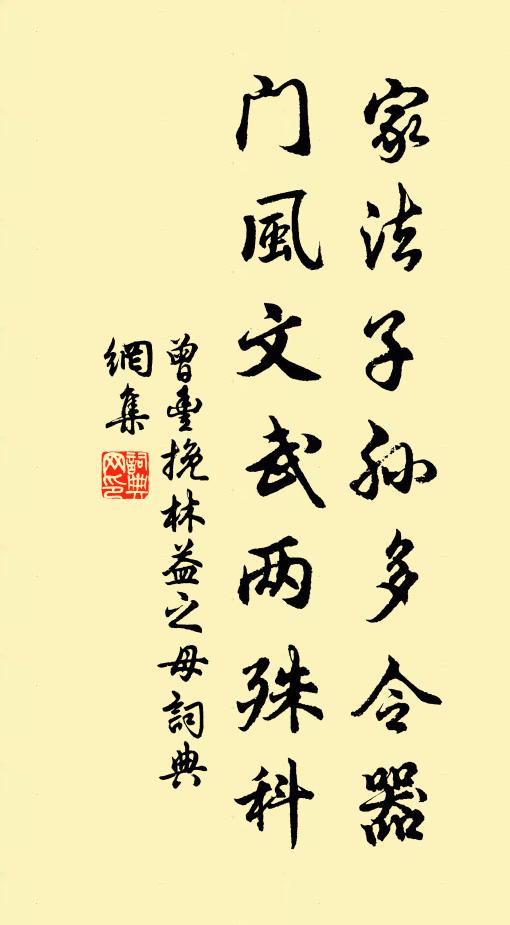 家法子孙多令器
门風文武两殊科
曾豊挽林益之母詞典
網集
詞典
网印